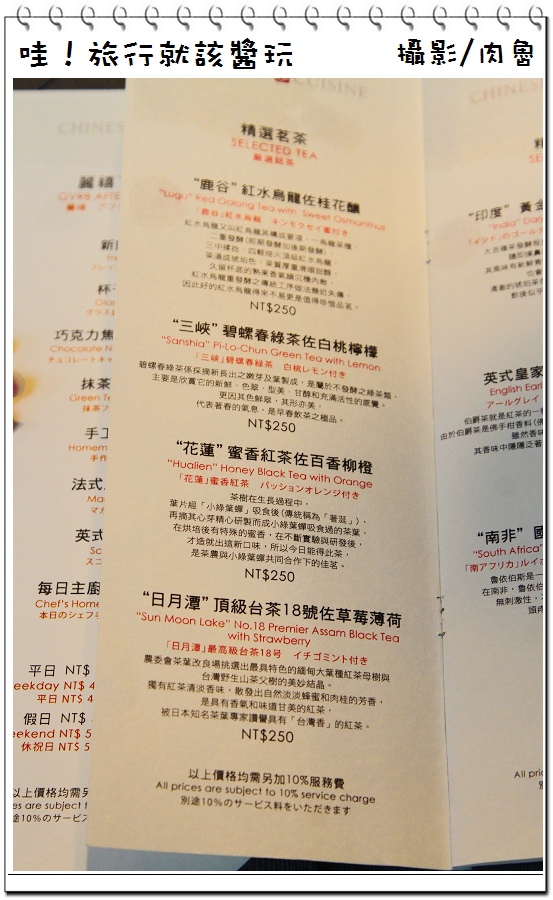 哇！旅行就該醬玩
攝影/肉魯
CUISINE
精選茗茶
SELECTED TEA
厳選銘茶
“鹿谷” 紅水烏龍佐桂花釀
“Lugu” Red Oolong Tea with Sweet Osmanthus
「鹿谷」紅水烏龍　キンモクセイ蜜付き
紅水烏龍又叫紅烏龍其構成要項，一烏龍茶種，
二重發酵(前期發酵加後期發酵)
三中揉捻，四輕焙火頂級紅水烏龍，
茶湯成琥珀色，茶質厚重滑順甜醇，
久留杯底的熟果香氣隨沉穩內斂，
紅水烏龍重發酵之傳統工序做法幾近失傳，
因此好的紅水烏龍得來不易更是值得珍惜品茗。
NT$250
“三峽” 碧螺春綠茶佐白桃檸檬
“Sanshia” Pi-Lo-Chun Green Tea with Lemon
「三峽」碧螺春綠茶　白桃レモン付き
碧螺春綠茶係採摘新長出之嫩芽及葉製成，是屬於不發酵之綠茶類，
主要是欣賞它的新鮮，色翠，型美，甘醇和充滿活性的感覺，
更因其色鮮翠，其形亦美，
代表著春的氣息，是早春飲茶之極品。
NT$250
“花蓮” 蜜香紅茶佐百香柳橙
“Hualien” Honey Black Tea with Orange
「花蓮」蜜香紅茶　パッションオレンジ付き
茶樹在生長過程中，
葉片經「小綠葉蟬」吸食後(傳統稱為「著涎」)，
再摘其心芽精心研製而成小綠葉蟬吸食過的茶葉，
在烘培後有特殊的蜜香，在不斷實驗與研發後，
才造就出這新口味，所以今日能得此茶，
是茶農與小綠葉蟬共同合作下的佳茗。
NT$250
“日月潭” 頂級台茶18號佐草莓薄荷
“Sun Moon Lake” No.18 Premier Assam Black Tea
with Strawberry
「日月潭」最高級台茶18号　イチゴミント付き
農委會茶葉改良場挑選出最具特色的緬甸大葉種紅茶母樹與
台灣野生山茶父樹的美妙結晶。
獨有紅茶清淡香味，散發出自然淡淡蜂蜜和肉桂的芳香，
是具有香氣和味道甘美的紅茶，
被日本知名茶葉專家讚譽具有「台灣香」的紅茶。
NT$250
以上價格均需另加10%服務費
All prices are subject to 10% service charge
別途10%のサービス料をいただきます
CHINES
麗禧
巧克力焦
Chocolate N
チョコレートキャ
抹茶
Green Te
抹茶フ
手工
Homem
手作
法式
Ma
マカ
英式
Sc
スコ
每日主廚
Chef's Home
本日のシェフモ
平日 NT$
eekday NT$ 4
平日 NT$ 4
假日 NT$
eekend NT$ 5
休祝日 NT$ 5
以上價格均需
es are subject t
途10%のサービス
CHINES
“印度” 黃金
“India” Darj
「インド」のゴールデ
英式皇家
English Earl
アールグレイ
伯爵茶就是紅茶的一種
由於伯爵茶是佛手柑香料(佛
雖然香味
其香味中隱隱泛著
“南非” 國
“South Africa”
「南アフリカ」ルイボ
魯依伯斯是一
在南非，魯依伯
無刺激性，
All p
別途